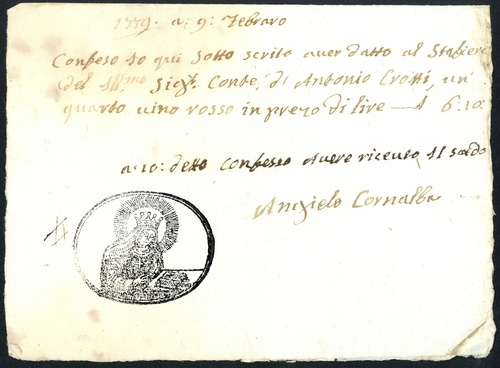 1779 a: 9: Febraro
Confeso Io qui Sotto scrito aver datto al Stafiere
del Ill:mo Sig:r Conte, D: Antonio Crotti, un'
quarto vino rosso in prezo di lire — £ 6:10:
a: 10: detto Confesso Avere riceuto Il saldo
Angielo Cornalba